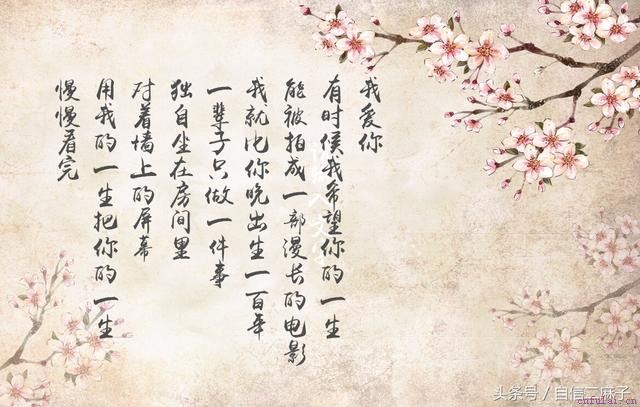 我爱你
有时候我希望你的一生
能被拍成一部漫长的电影
我就比你晚出生一百年
一辈子只做一件事
独自坐在房间里
对着墙上的屏幕
用我的一生把你的一生
慢慢看完
头条号 / 自信二麻子
cnfulai.cn